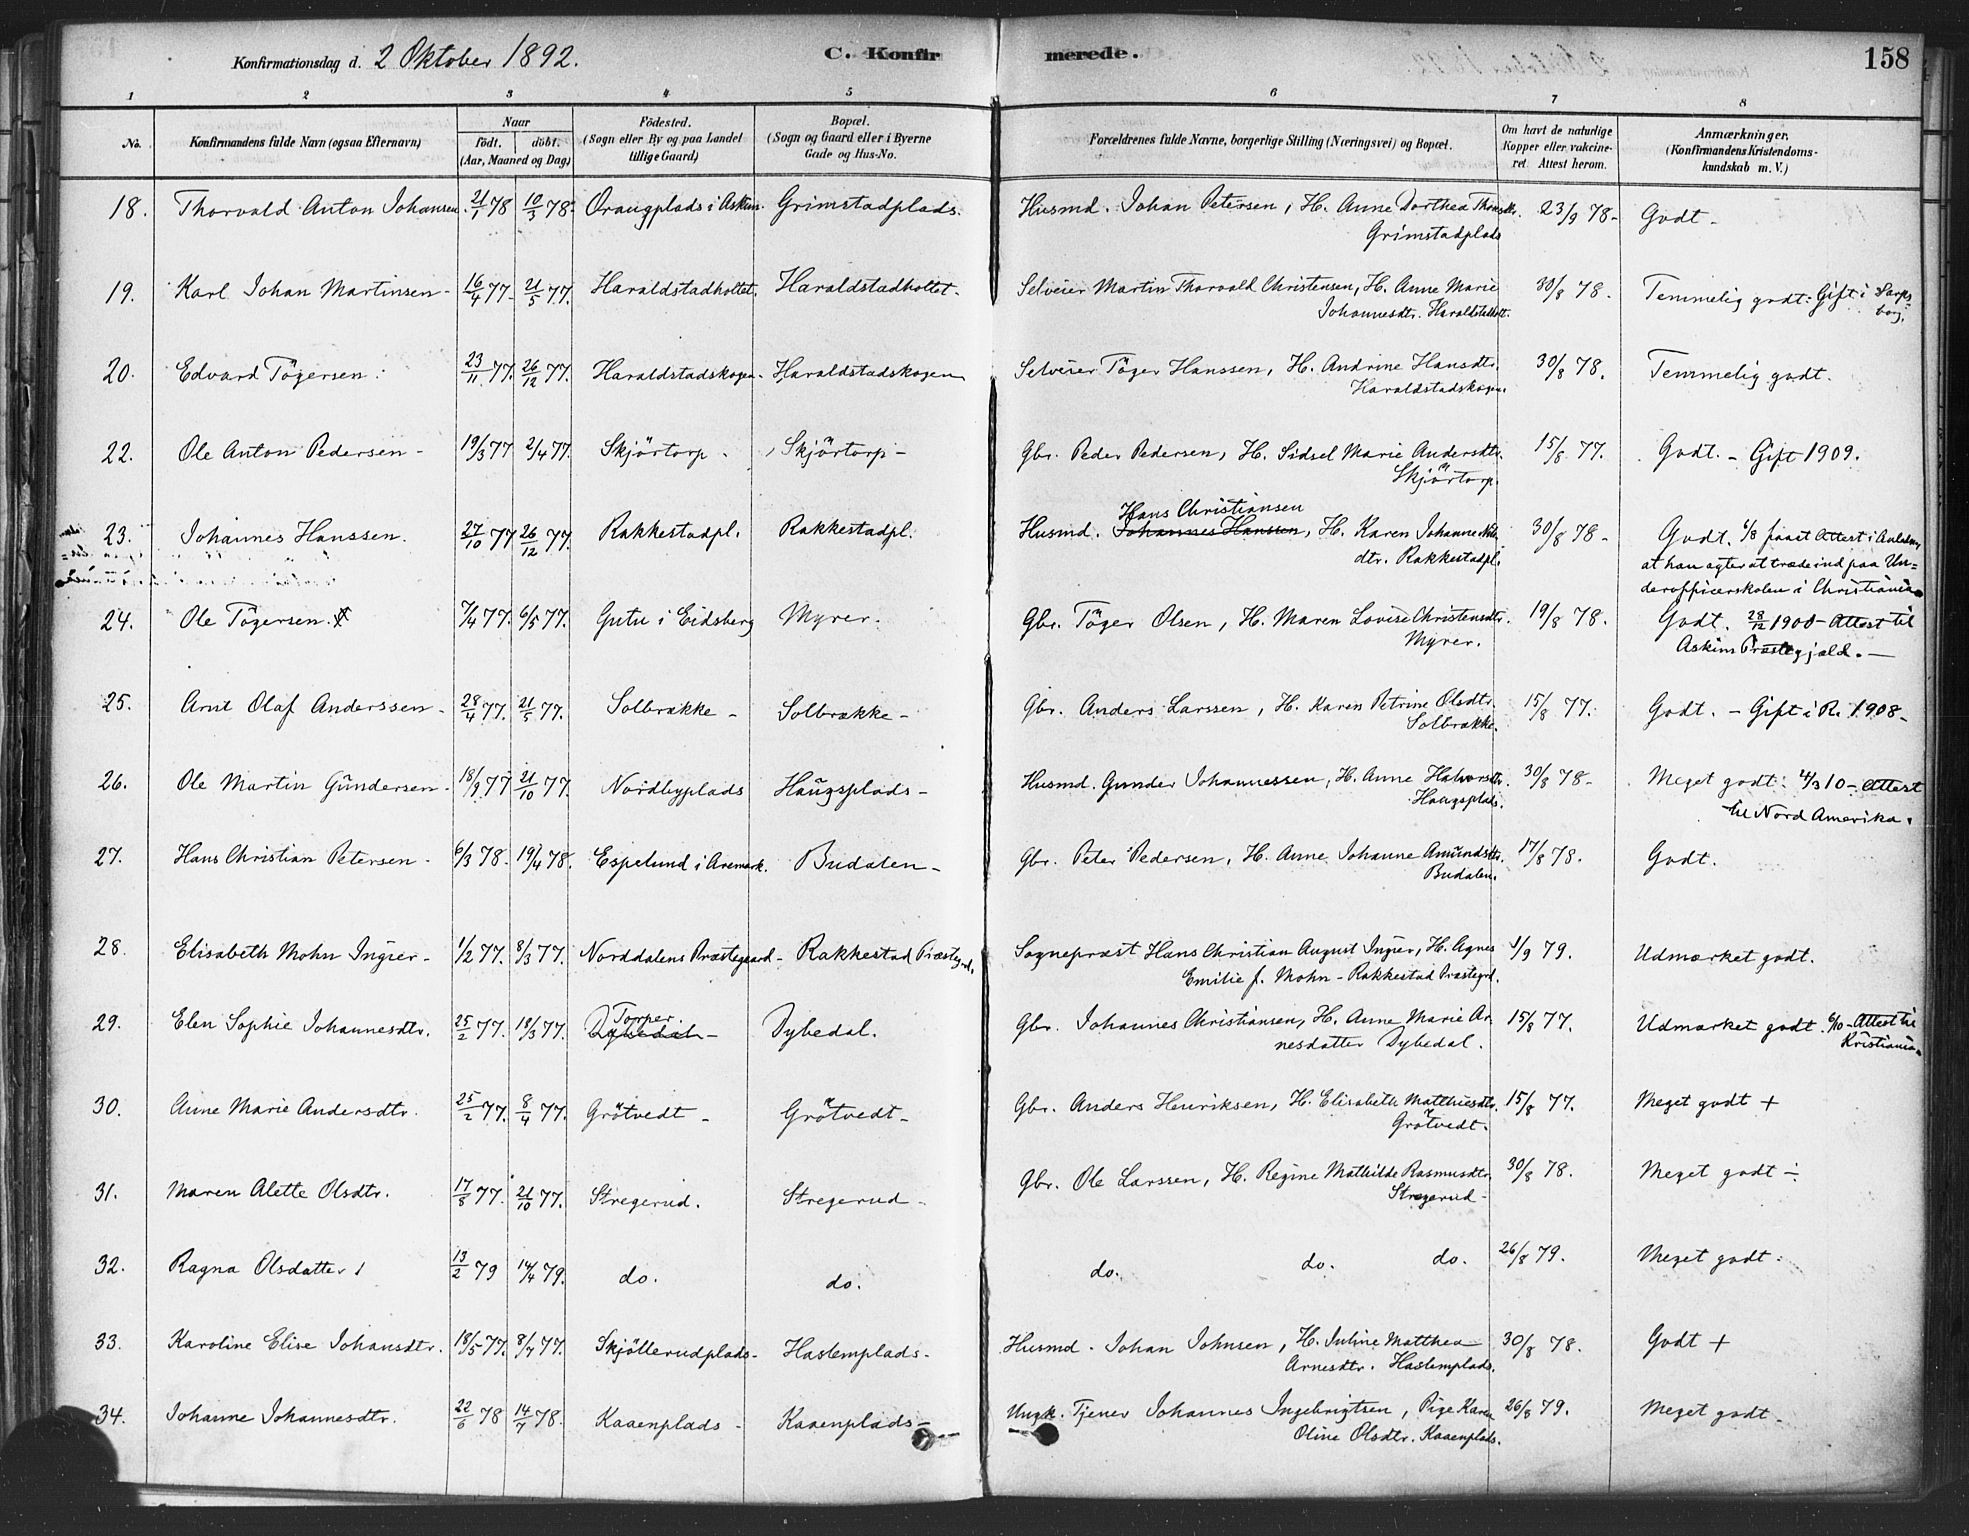 Konfirmationsdag d. 2 Oktober 1892. C. Konfirmerede. 158
1 2 3 4 5 6 7 8
No. Konfirmandens fulde Navn (ogsaa Efternavn) Naar födt. döbt. (Aar, Maaned og Dag) Födested. (Sogn eller By og paa Landet tillige Gaard) Bopæl. (Sogn og Gaard eller i Byerne Gade og Hus-No. Forældrenes fulde Navne, borgerlige Stilling (Næringsvei) og Bopæl. Om havt de naturlige Kopper eller vakcineret Attest herom. Anmærkninger. (Konfirmandens Kristendomskundskab m. V.)
18. Thorvald Anton Johansen. 21/1 78 10/3 78 Oraugplads i Askim. Grimstadplads. Husmd. Johan Petersen, H. Anne Dorthea 23/9 78- Godt -
Grimstadplads
19. Karl Johan Martinsen - 16/4 77- 21/5 77. Haraldstadholtet. Haraldstadholtet. Selveier Martin Thorvald Christensen, H. Anne Marie 30/8 78. Temmelig godt: Gift i Sarps-
Johannesdtr. Haraldstadholt. borg.
20. Edvard Tögersen. 23/11 77. 26/12 77. Haraldstadskogen. Haraldstadskogen Selveier Töger Hanssen, H. Andrine Hansdtr. 30/8 78. Temmelig godt.
Haraldstadskogen.
22. Ole Anton Pedersen - 19/3 77 2/4 77. Skjörtorp - Skjörtorp - Gbr. Peder Pedersen, H. Sidsel Marie Andersdtr. 15/8 77. Godt. - Gift 1909.
Skjörtorp.
Hans Christiansen
23. Johannes Hanssen. 27/10 77 26/12 77. Rakkestadpl. Rakkestadpl. Husmd. Johannes Hanssen, H. Karen Johanne Nils- 30/8 78- Godt. 6/8 faaet Attest i Anledn.
dtr. Rakkestadpl. at han agter at træde ind paa Un=
derofficerskolen i Christiania.
24. Ole Tögersen. 7/4 77. 6/5 77. Gutu i Eidsberg Myrer. Gbr. Töger Olsen, H. Maren Lovise Christensdtr. 19/8 78. Godt. 28/12 1900 - Attest til
Myrer. Askim Præstegjæld. -
25. Arnt Olaf Anderssen - 28/4 77. 21/5 77. Solbrække - Solbrække - Gbr. Anders Larssen, H. Karen Petrine Olsdtr. 15/8 77. Godt. - Gift i R. 1908-
Solbrække.
26. Ole Martin Gundersen - 18/9 77 21/10 77. Nordbyplads Haugsplads - Husmd. Gunder Johannessen, H. Anne Halvorsdtr. 30/8 78- Meget godt: 4/3 10 - Attest
Haugsplads. til Nord Amerika.
27. Hans Christian Petersen - 6/3 78- 19/4 78. Espelund i Aremark. Budalen - Gbr. Peter Pedersen, H. Anne Johanne Amundsdtr. 17/8 78. Godt.
Budalen.
28. Elisabeth Mohn Ingier - 1/2 77. 8/3 77. Norddalens Præstegaard - Rakkestad Præstegrd. Sognepræst Hans Christian August Ingier, H. Agnes 1/9 79. Udmærket godt.
Emilie f. Mohn - Rakkestad Præstegrd.
Torper.
29. Elen Sophie Johannesdtr. 25/2 77. 18/3 77. Dybedal - Dybedal. Gbr. Johannes Christiansen, H. Anne Marie Ar- 15/8 77. Udmærket godt. 6/10 - Attest til
nesdatter Dybedal. Kristiania.
30. Anne Marie Andersdtr. 25/2 77. 8/4 77. Grötvedt - Grötvedt - Gbr. Anders Henriksen, H. Elisabeth Matthisdtr. 15/8 77. Meget godt +
Grötvedt.
31. Maren Alette Olsdtr. 17/8 77. 21/10 77. Stregerud. Stregerud - Gbr. Ole Larssen, H. Regine Mathilde Rasmusdtr. 30/8 78. Meget godt ÷
Stregerud -
32. Ragna Olsdatter 13/2 79 14/4 79. do. do. do. do. do. 26/8 79. Meget godt:
33. Karoline Elise Johansdtr. 18/5 77. 8/7 77. Skjöllerudplads - Haslemplads - Husmd. Johan Johnsen, H. Juline Matthea 30/8 78. Godt +
Arnesdtr. Haslemplads.
34. Johanne Johannesdtr. 22/6 78 14/7 78. Kaaenplads - Kaaenplads - Ungk. Tjener Johannes Ingebrigtsen, Pige Karen 26/8 79. Meget godt -
Oline Olsdtr. Kaaenplads.